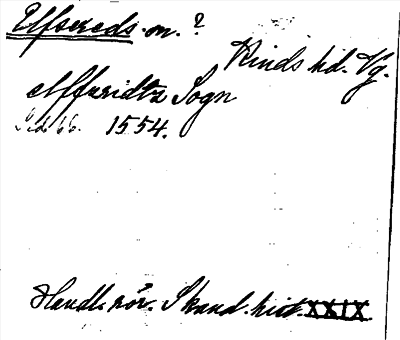 Elfsereds-m. ?
Kinds hd. Vg.
Alffuridtz Sogn
Sid 66. 1554.
Handl. rör. Skand. hist. XXIX